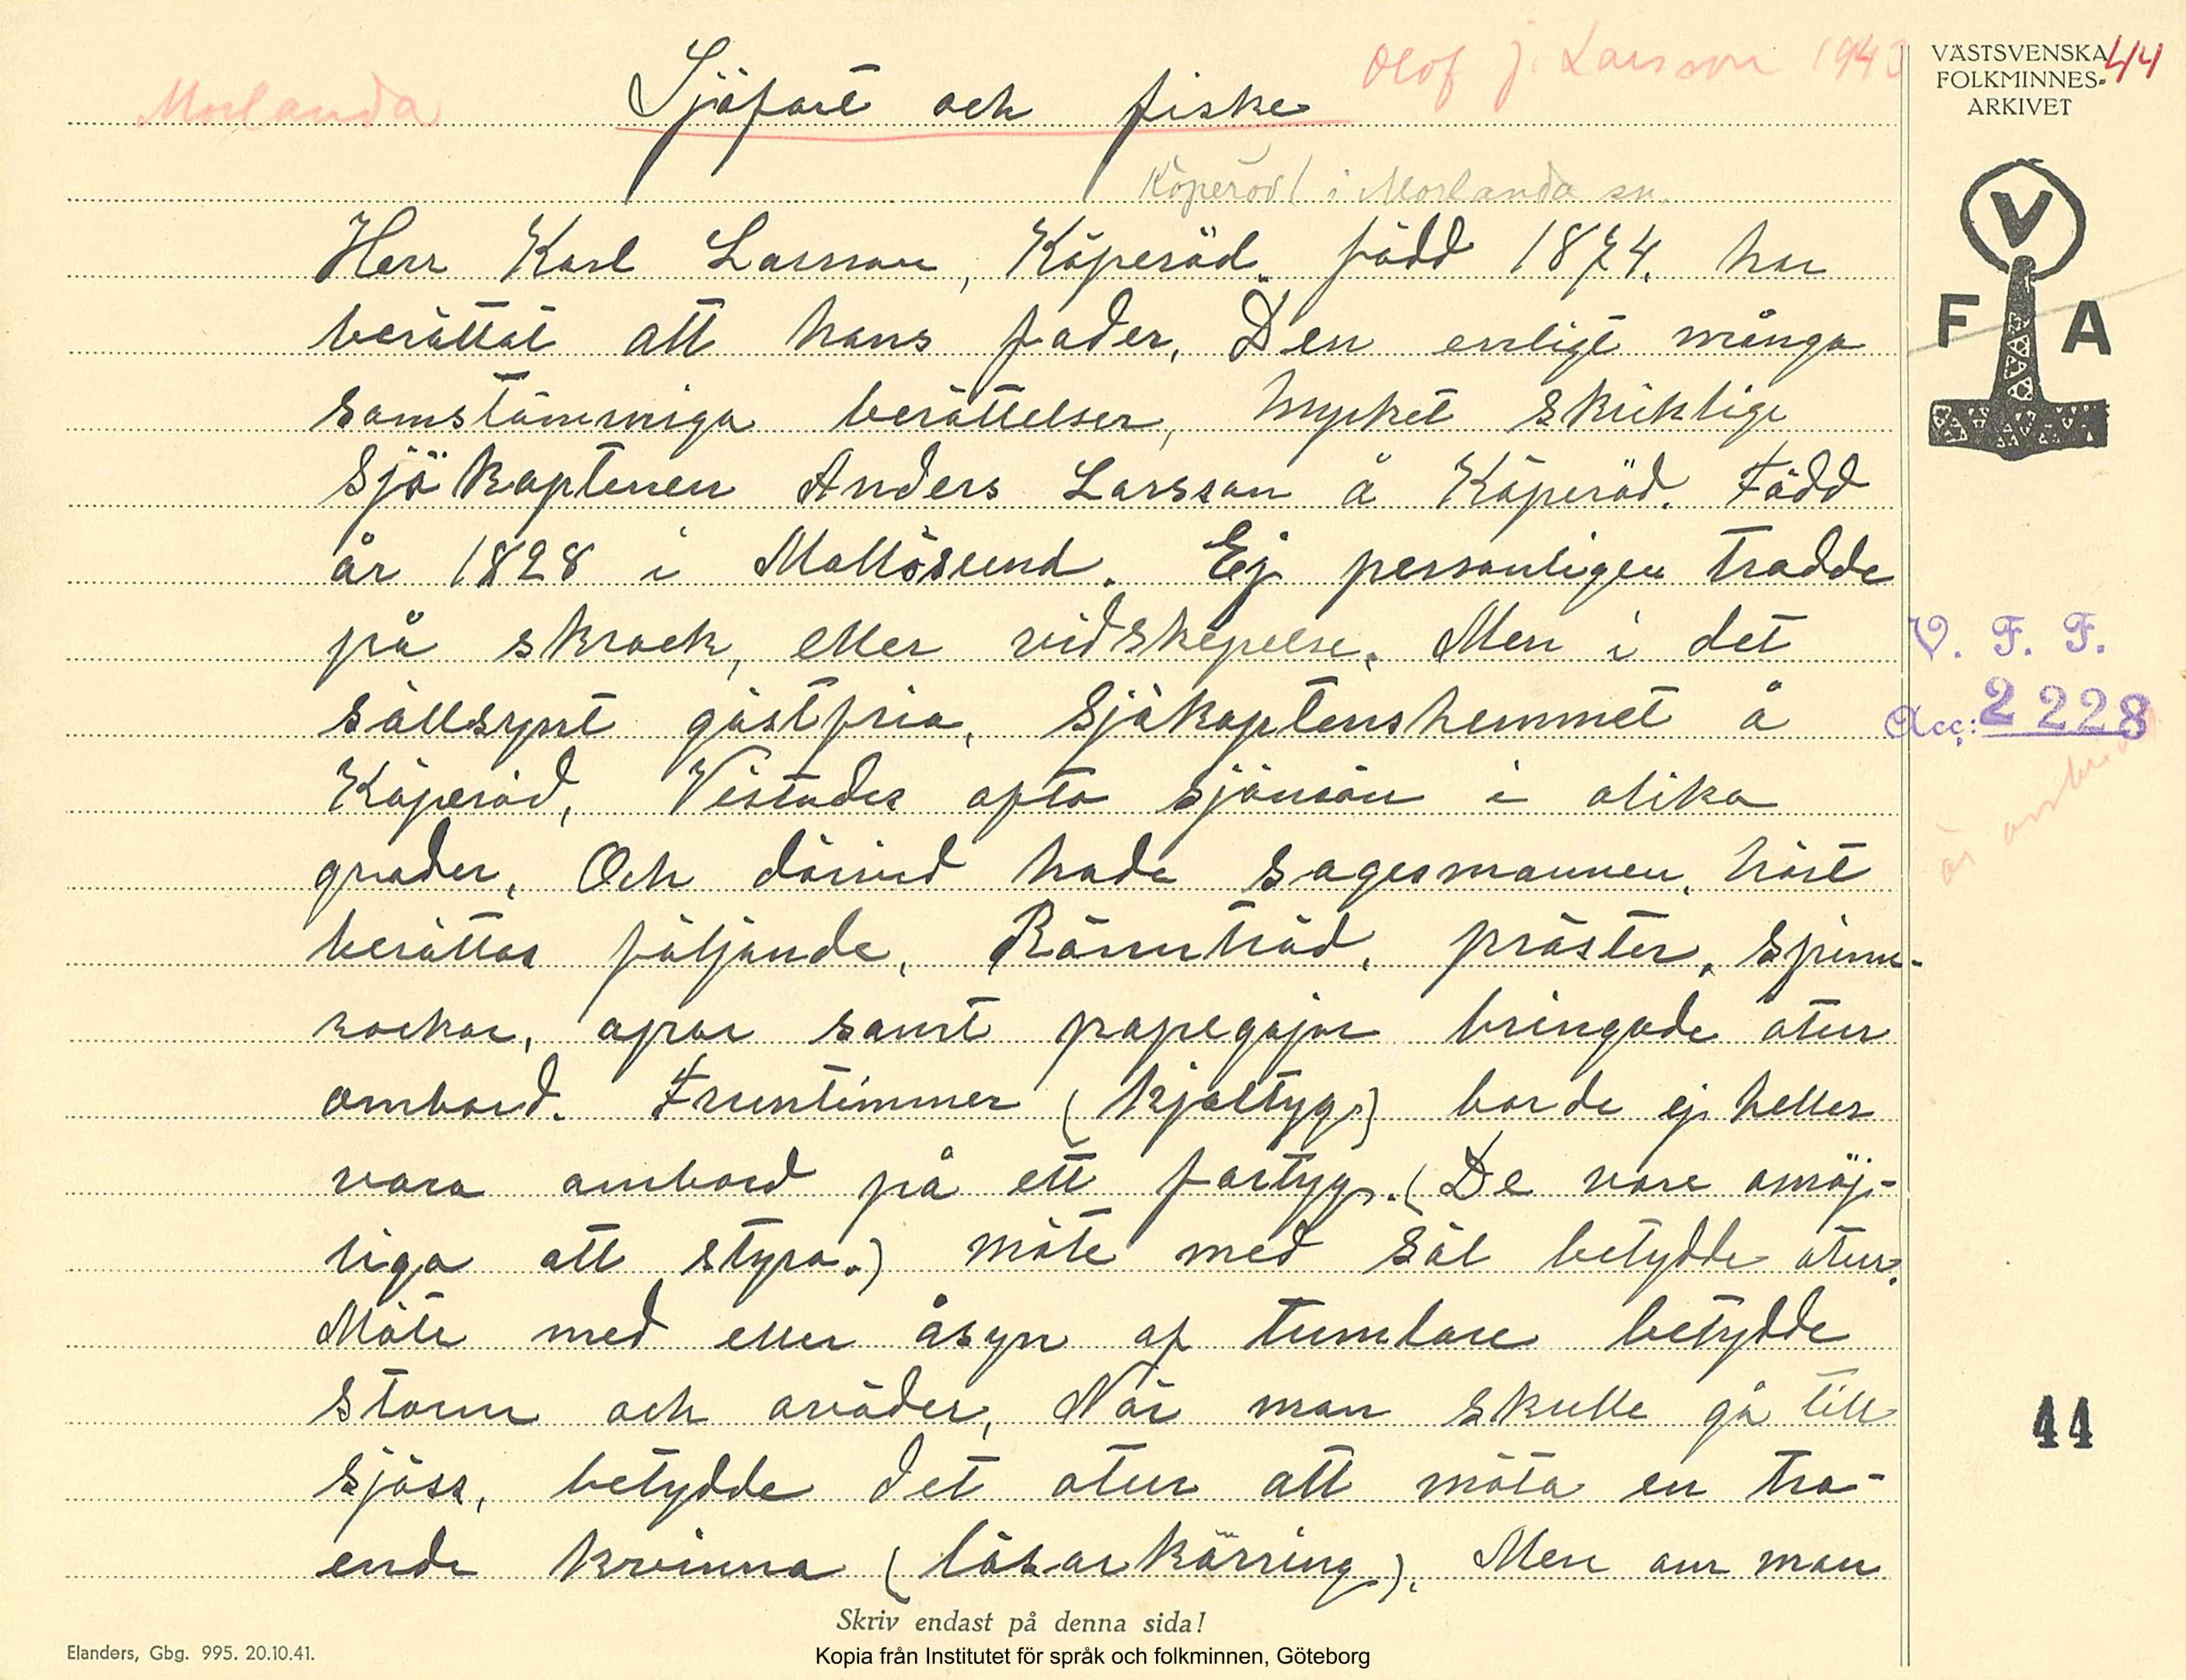 Morlanda
Sjöfart och fiske
Olof J. Larsson 1943
VÄSTSVENSKA 44
FOLKMINNES-
ARKIVET
Köperöd i Morlanda sn.
Herr Karl Larsson, Köperöd. född 1874. har
berättat att hans fader, Den enligt många
samstämmiga berättelser, mycket skicklige
Sjökaptenen Anders Larsson å Köperöd. Född
år 1828 i Mollösund. Ej personligen trodde
på skrock, eller vidskepelse. Men i det
sällsynt gästfria, Sjökaptenshemmet å
Köperöd, Vistades ofta sjömän i olika
grader, Och därvid hade sagesmannen, hört
berättas följande, Rönnträd, präster, Spinn-
rockar, apor samt papegojor bringade otur
ombord. Fruntimmer (kjoltyg) borde ej heller
vara ombord på ett fartyg. (De voro omöj-
liga att styra.) möte med säl betydde otur.
Möte med eller åsyn af tumlare betydde
storm och oväder, När man skulle gå till
sjöss, betydde det otur att möta en tro-
ende kvinna (läsarkärring). Men om man
V
F A
V. F. F.
Acc: 2228
44
Skriv endast på denna sida!
Elanders, Gbg. 995. 20.10.41.
Kopia från Institutet för språk och folkminnen, Göteborg